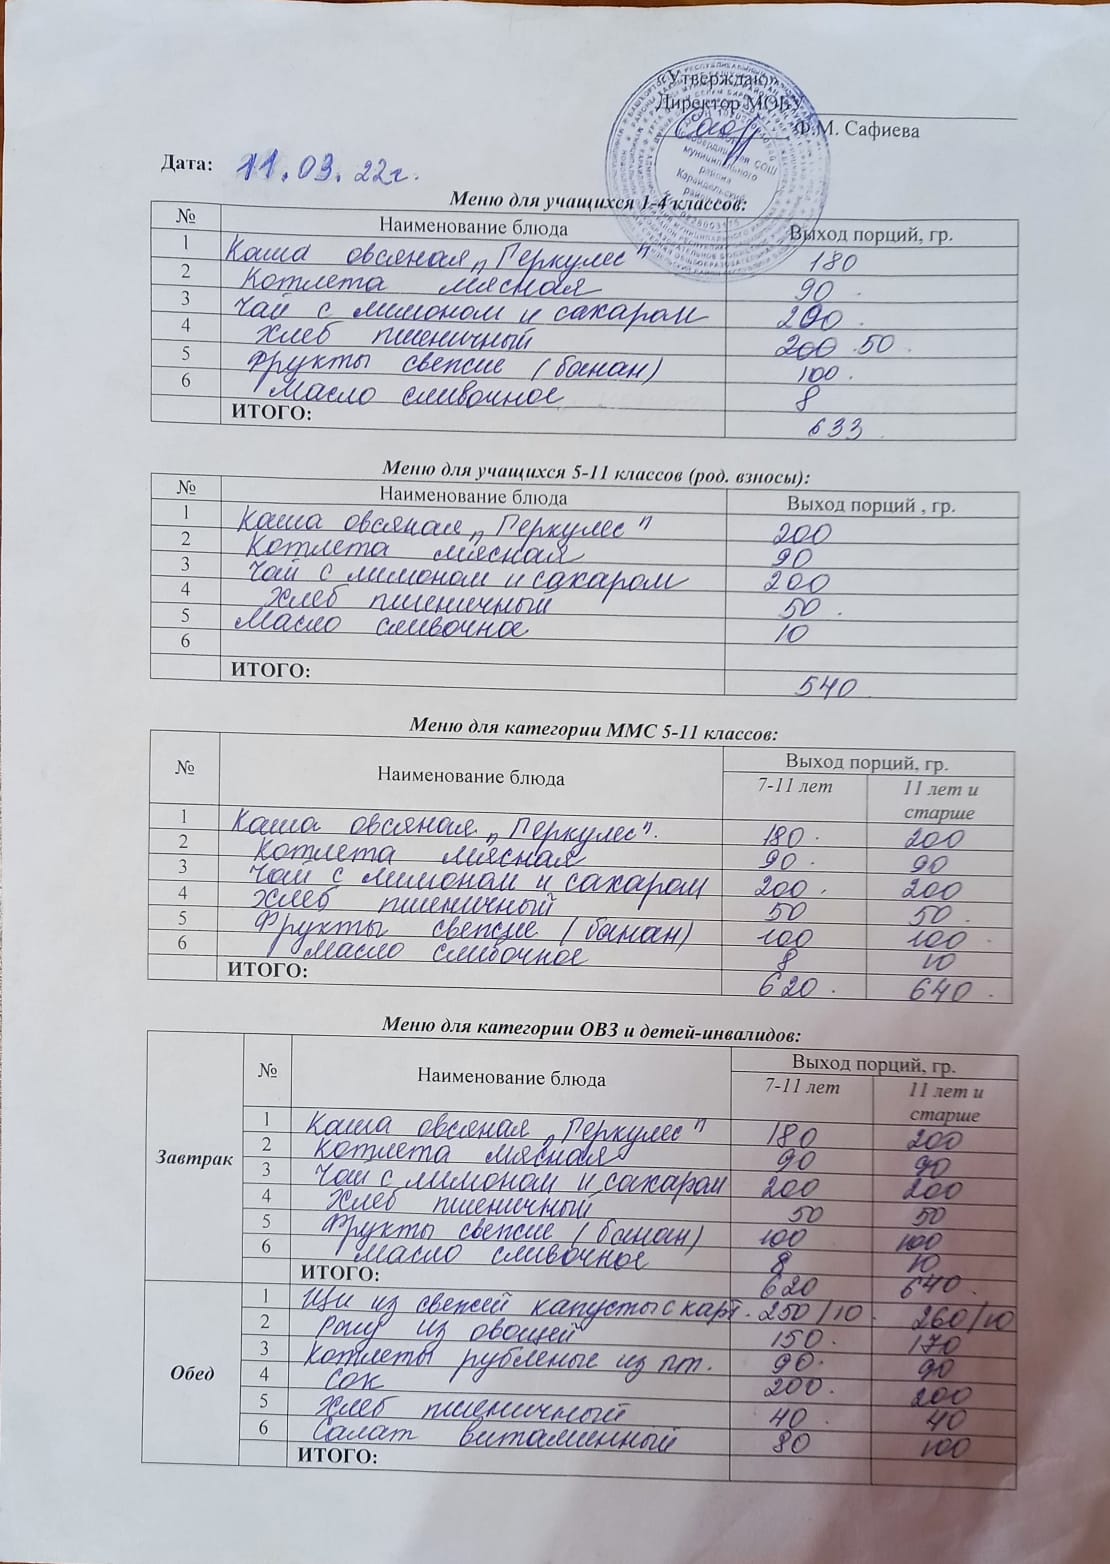 «Утверждаю»
Директор МОБУ
Ф.М. Сафиева
Дата: 11.03.22г.
Меню для учащихся 1-4 классов:
№ Наименование блюда Выход порций, гр.
1 Каша овсяная „Геркулес" 180
2 Котлета мясная 90
3 Чай с лимоном и сахаром 200
4 Хлеб пшеничный 200 50
5 Фрукты свежие (банан) 100
6 Масло сливочное 8
ИТОГО: 633
Меню для учащихся 5-11 классов (род. взносы):
№ Наименование блюда Выход порций , гр.
1 Каша овсяная „Геркулес" 200
2 Котлета мясная 90
3 Чай с лимоном и сахаром 200
4 Хлеб пшеничный 50
5 Масло сливочное 10
6
ИТОГО: 540
Меню для категории ММС 5-11 классов:
№ Наименование блюда Выход порций, гр.
7-11 лет 11 лет и
старше
1 Каша овсяная „Геркулес". 180 200
2 Котлета мясная 90 90
3 Чай с лимоном и сахаром 200 200
4 Хлеб пшеничный 50 50
5 Фрукты свежие (банан) 100 100
6 Масло сливочное 8 10
ИТОГО: 620 640
Меню для категории ОВЗ и детей-инвалидов:
№ Наименование блюда Выход порций, гр.
7-11 лет 11 лет и
старше
Завтрак
1 Каша овсяная „Геркулес" 180 200
2 Котлета мясная 90 90
3 Чай с лимоном и сахаром 200 200
4 Хлеб пшеничный 50 50
5 Фрукты свежие (банан) 100 100
6 Масло сливочное 8 10
ИТОГО: 620 640
Обед
1 Щи из свежей капусты с карт. 250/10 260/10
2 Рагу из овощей 150 170
3 Котлеты рубленые из пт. 90 90
4 Сок 200 200
5 Хлеб пшеничный 40 40
6 Салат витаминный 80 100
ИТОГО: